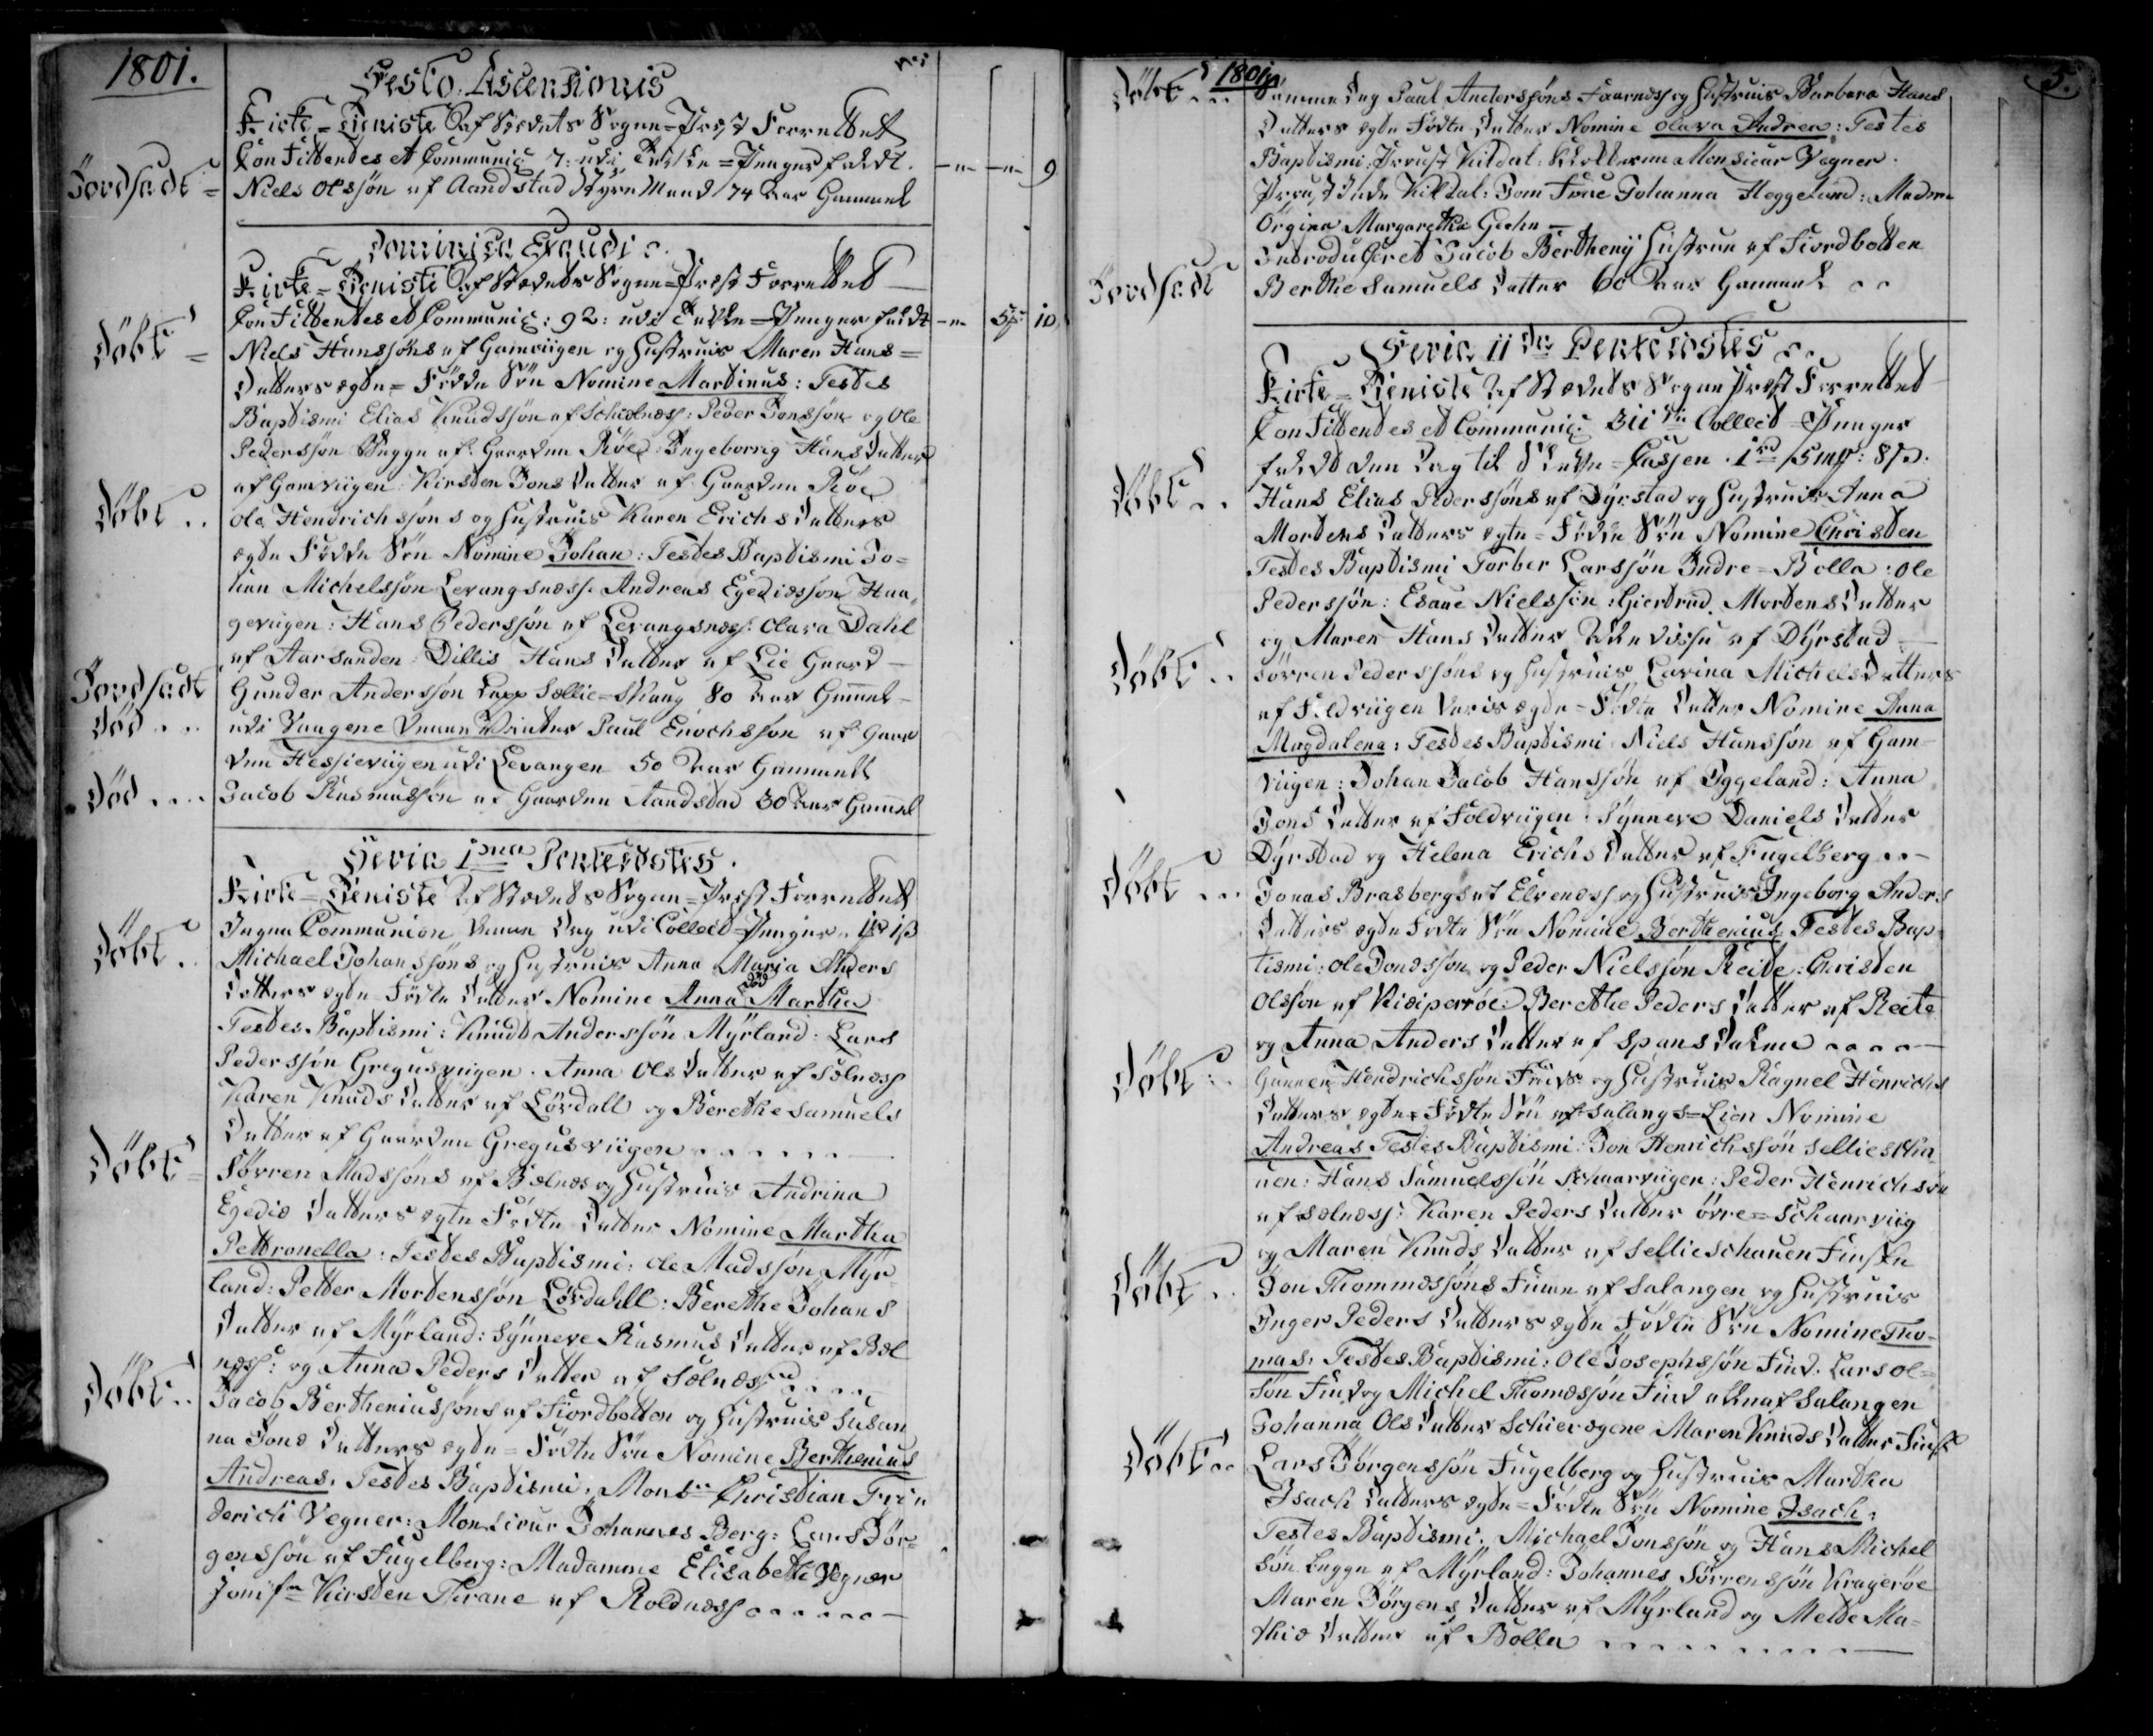 1801.
Festo Ascensionis
Kirke=Tieniste Af Stædets Sogne=Præst Forrettet
Confitentes et Communic: 7: udi Tavle=Penger faldt. 9
Jordfæst = Niels Olssøn af Aandstad Styre Mand 74 Aar Gammel
Dominica Exaudi
Kirke=Tieniste af Stædets Sogne=Præst Forrettet
Confitentes et Communic: 92: udi Tavle=Penger faldt 5 10
Døbt = Niels Hanssøns af Gamviigen og Hustruis Maren Hans=
Datters ægte=Fødde Søn Nomine Martinus: Testes
Baptismi Elias Knudssøn af Schielnæss: Peder Jonssøn og Ole
Pederssøn Begge af Gaarden Røe: Ingeborrig Hans Datter
af Gamviigen: Kirsten Jons Datter af Gaarden Røe
Døbt .. Ole Hendrichssøns og Hustruis Karen Erichs Datters
ægte Fødde Søn Nomine Johan: Testes Baptismi Jo=
han Michelssøn Levangsnæss. Andreas Egediæssøn Haa
geviigen: Hans Pederssøn af Levangsnæss: Olava Dahl
af Aarsanden: Dillis Hans Datter af Lie Gaard
Jordfæst Gunder Anderssøn Lapp Sællie=Skoug 80 Aar Gammel
Død ... udi Vaagene Denne Vinter Paul Enochssøn af Gaar
den Hessieviigen udi Levangen 50 Aar Gammell
Død .... Jacob Rasmussøn af Gaarden Aandstad 30 Aar Gammel
Feria 1ma Pentecostes.
Kirke=Tieniste Af Stædets Sogne=Præst Forrettet
Ingen Communion denne Dag udi Collect=Penger
Døbt .. Michael Johanssøns og Hustruis Anna Maria Anders
Datters ægte Fødte Datter Nomine Anna Martha
Testes Baptismi: Knudt Anderssøn Myrland: Lars
Pederssøn Gregusviigen. Anna Ols Datter af Sælnæss
Karen Knuds Datter af Lørdall og Berethe Samuels
Datter af Gaarden Gregusviigen
Døbt = Sørren Madssøns af Bælnæs og Hustruis Andrina
Egediæ Datters ægte Fødte Datter Nomine Martha
Pettronella: Testes Baptismi: Ole Madssøn Myr
land: Petter Mortenssøn Lørdahll: Berethe Johans
Datter af Myrland: Synneve Rasmus Datter af Bæl
næss: og Anna Peders Datter af Sælnæss
Døbt .. Jacob Bertheniussøns af Fiordbotten og Hustruis Susan
na Jons Datters ægte=Fødte Søn Nomine Berthenius
Andreas. Testes Baptismi: Monsr Christian Fri
derich Vegner: Monsieur Johannes Berg: Lars Jør=
genssøn af Fugelberg: Madamme Elisabethe Vegner
Jomfr Kirsten Thrane af Roldnæss
1801
5.
Døbt ... Samme Dag Paul Anderssøns Faarnæss og Hustruis Barbara Hans
Datters ægte Fødte Datter Nomine Olava Andrea: Testes
Baptismi: Proust Kildal: Monsieur Vegner:
Kildal: Jomfrue Johanna Heggelund: Madme
Örgina Margaretha Geehn
Introduceret Jacob Bertheny Hustrue af Fiordbotten
Jordfæst Berthe Samuels Datter 60 Aar Gammel
Feria 11da Pentecostes
Kirke=Tieniste Af Stædets Sogne Præst Forrettet
Confitentes et Communic: Collect=Penger
faldt den Dag til Cassen
Døbt .. Hans Elias Pederssøns af Dyrstad og Hustruis Anna
Mortens Datters ægte=Fødde Søn Nomine Christen
Testes Baptismi Torber Larssøn Indre=Bolla: Ole
Pederssøn: Esaue Nielssøn: Giertrud Mortens Datter
og Maren Hans Datter af Dyrstad
Døbt .. Sørren Pederssøns og Hustruis Lovina Michels Datters
af Foldviigen ægte=Fødte Datter Nomine Anna
Magdalena: Testes Baptismi Niels Hanssøn af Gam=
viigen: Johan Jacob Hanssøn af Iggeland: Anna
Jons Datter af Foldviigen: Synneve Daniels Datter
Dyrstad og Helena Erichs Datter af Fugelberg
Døbt ... Jonas Brasbergs af Elvenæss og Hustruis Ingeborg Anders
Datters ægte Fødte Søn Nomine Berthenius Testes Bap
tismi: Ole Jonssøn og Peder Nielssøn Reite: Christen
Olssøn af Kiøiperøe: Berethe Peders Datter af Reite
og Anna Anders Datter af Spans Dalen
Døbt .. Gunner Hendrichssøn og Hustruis Ragnel Henrichs
Datters ægte=Fødte Søn af Salangs=Lien Nomine
Andreas Testes Baptismi: Jon Henrichssøn Selliescha
uen: Hans Samuelssøn Schaarviigen: Peder Henrichssøn
af Sælnæss: Karen Peders Datter øvre=Schaarviig
og Maren Knuds Datter af Sellieschauen Finske
Døbt .. Jon Thommæssøns Finne af Salangen og Hustruis
Inger Peders Datters ægte Fødte Søn Nomine Tho=
mas: Testes Baptismi: Ole Josephssøn Find. Lars Ol=
søn Find og Michel Thomæssøn Find alle af Salangen
Johanna Ols Datter Schieveegene Maren Knuds Datter Finsk
Døbt .. Lars Jørgenssøn Fugelberg og Hustruis Martha
Isach Datters ægte=Fødte Søn Nomine Isach:
Testes Baptismi: Michael Jonssøn og Hans Michel
søn begge af Myrland: Johannes Sørrenssøn Kragerøe
Maren Jørgens Datter af Myrland og Mette Ma=
this Datter af Bolla